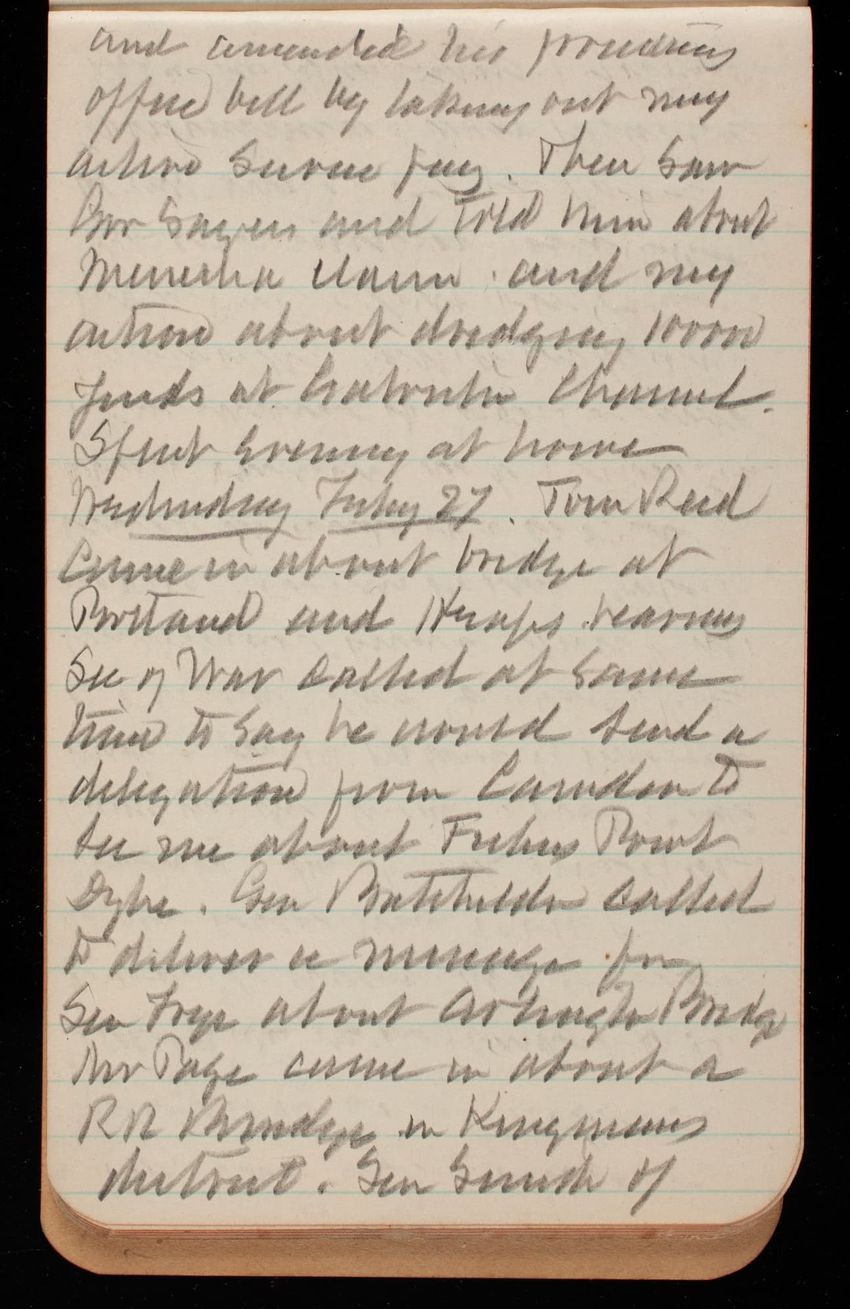 and amended his providing
office bill by taking out my
active service pay. Then saw
Gov Sawyer and told him about
Menasha claim. and my
action about dredging 10000
funds at Channel.
Spent evening at home
Wednesday Feby 27. Tom Reed
came in about bridge at
Portland and hearing
Sec of War called at same
time to say he would send a
delegation from Camden to
see me about Fishers Point
Dyke. Gen Batchelder called
to deliver a message from
Sen Frye about Arlington Bridge
Mr Page came in about a
RR Bridge in Kingmans
district. Gen Smith of